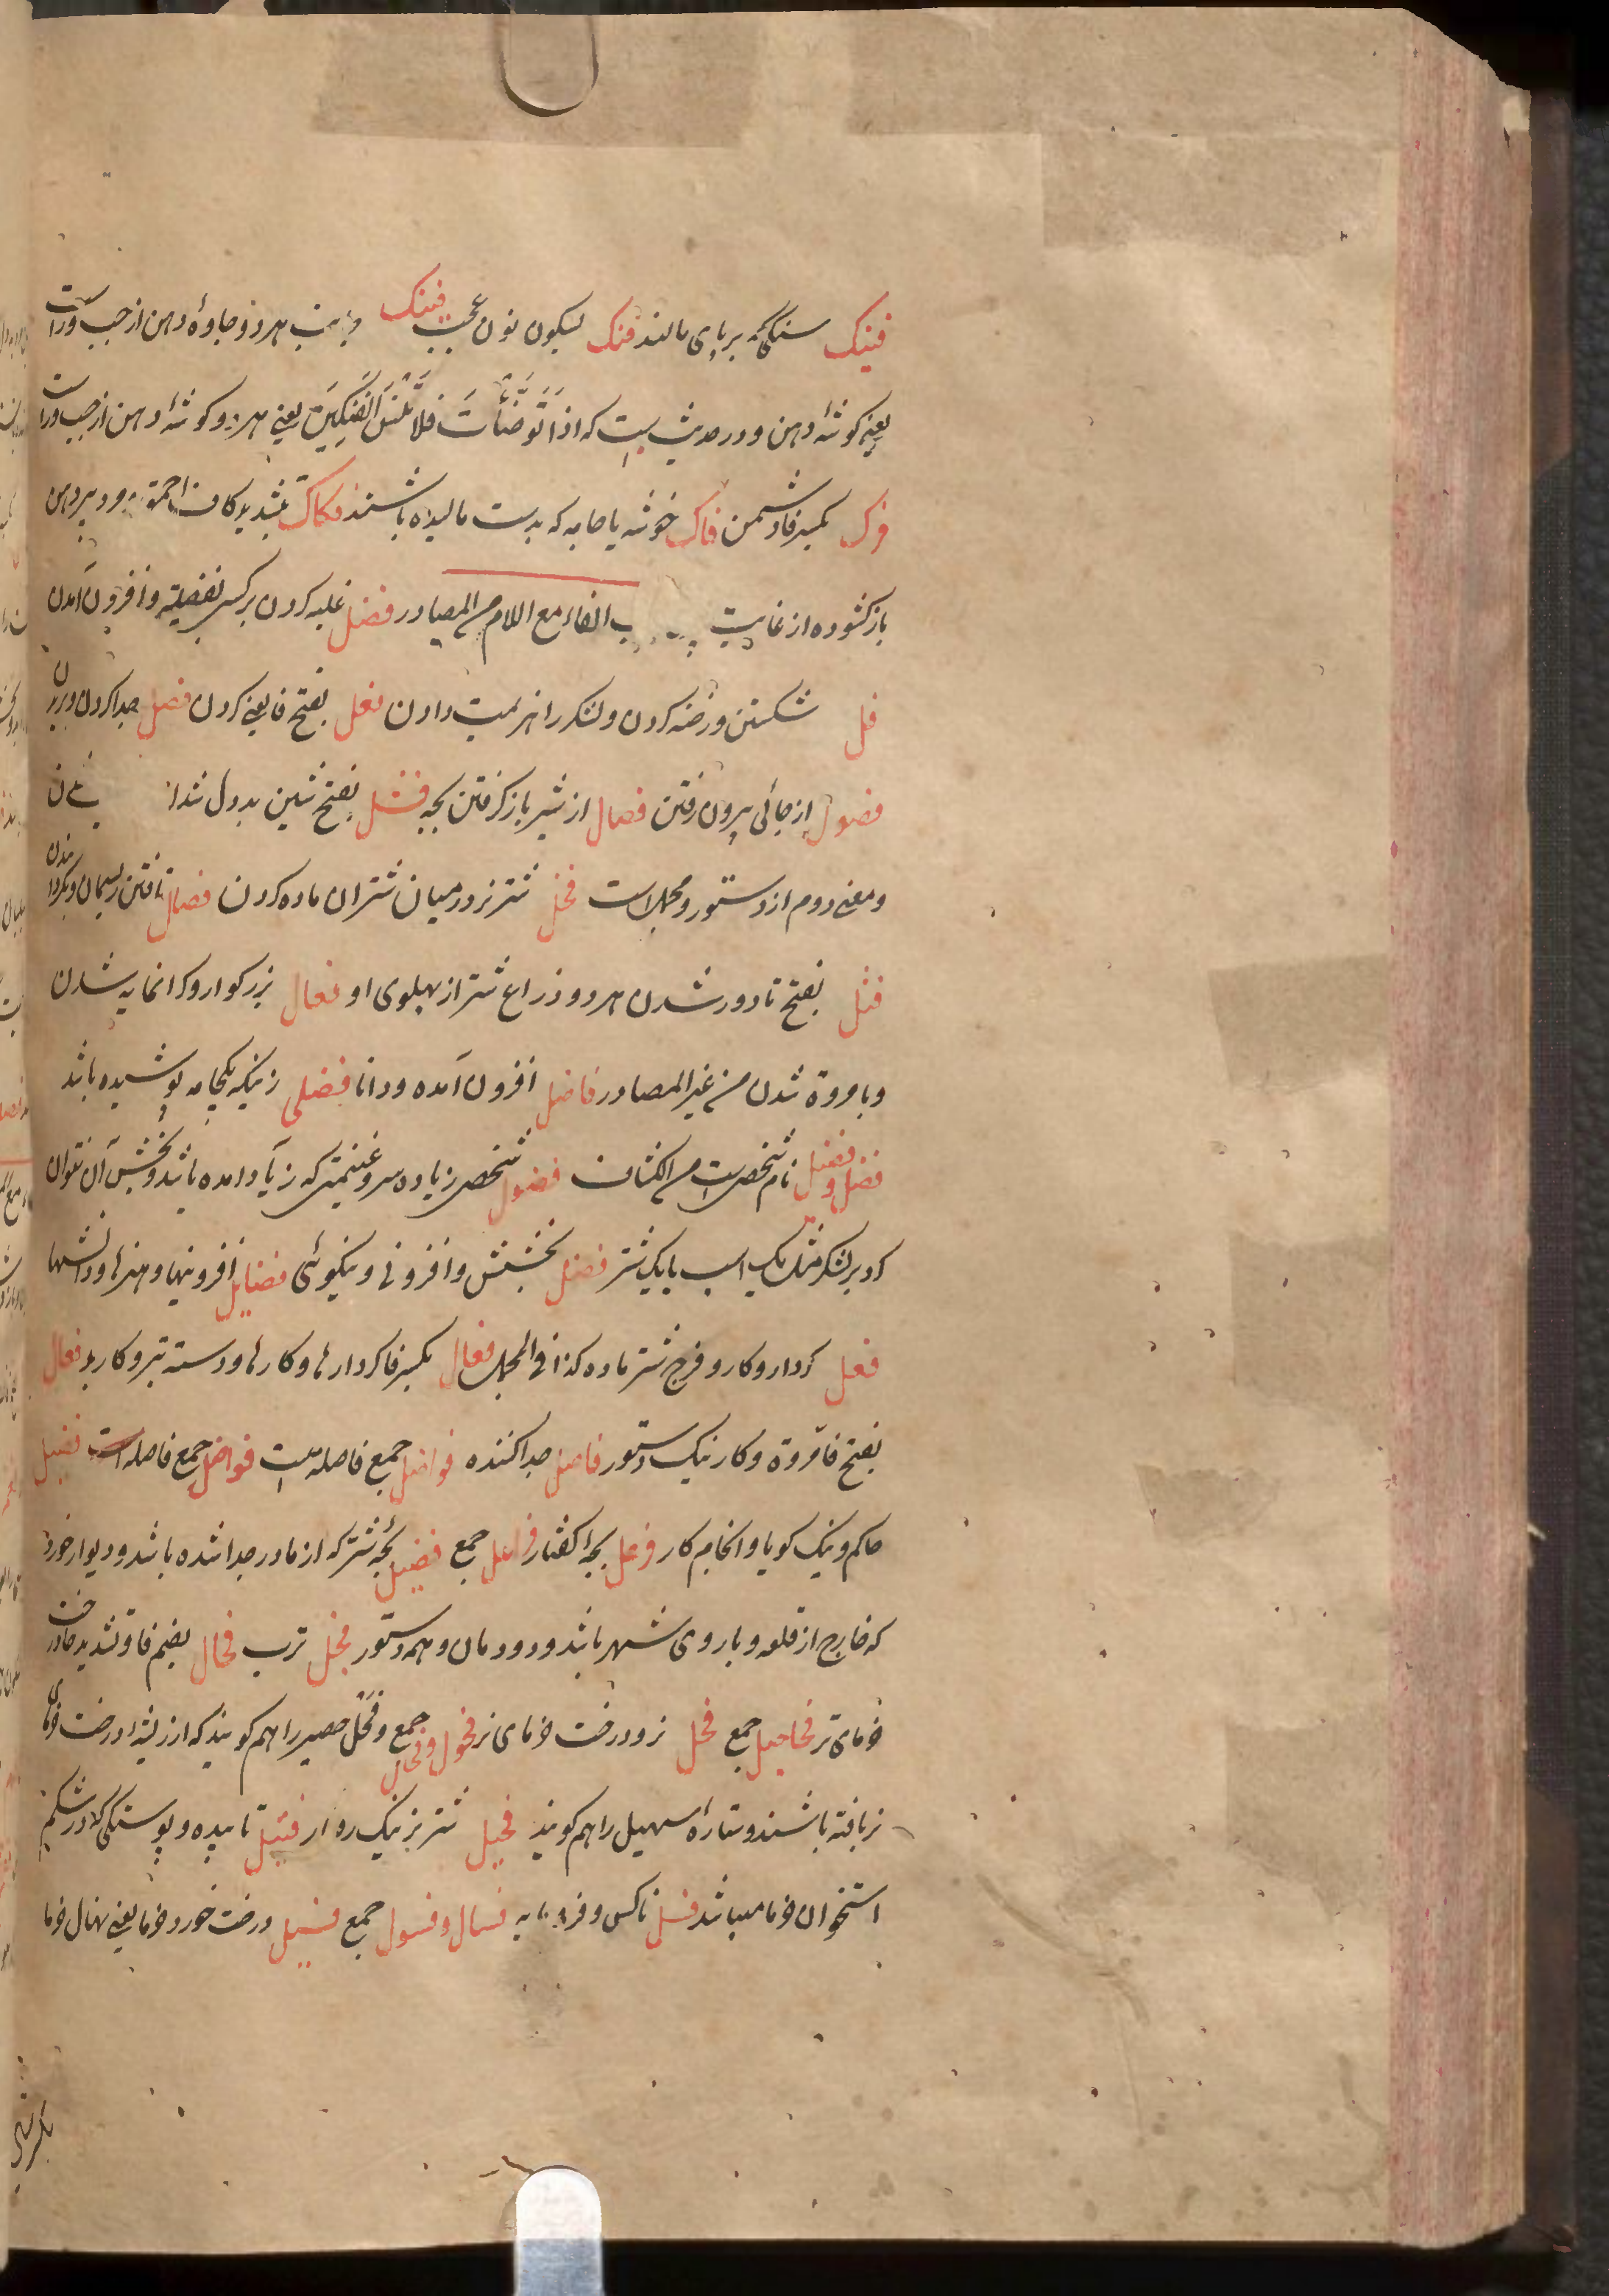 فینک سنگی که بر پای مالند فنک بسکون نون عجب فینک و نیز هر دو جاوۀ دهن از چپ و راست
یعنی کوشۀ دهن و در حدیث است که اذا تَوَضَّأْتَ فلا تَنْسَ الفَنِیکَیْنِ یعنی هر دو کوشۀ دهن از چپ و راست
فرک بکسر فا دشمن فاک خوشه یا جامه که بدست مالیده باشند فکاک بتشدید کاف احمق و پیر دهن
باز کشوده از غایت باب الفاء مع اللام من المصادر فضل غلبه کردن بر کسی بفضیلت و افزون آمدن
فل شکستن و رخنه کردن و لشکر را هزیمت دادن فعل بفتح فا یعنی کردن فصل جدا کردن و بریدن
فصول از جائی بیرون رفتن فصال از شیر باز کرفتن بچه فشل بفتح شین بددل شدن
و معنی دوم از دستور و مجمل است فحل شتر نر در میان شتران ماده کردن فتال تافتن ریسمان و بگردانیدن
فتل بفتح تا دور شدن هر دو ذراع شتر از پهلوی او فعال بزرکوار و کرانمایه شدن
و با مروة شدن من غیر المصادر فاضل افزون آمده و دانا فضلی زنیکه یکجامه پوشیده باشد
فضل و فضیل نام شخصی است من الکشاف فضول شخص زیاده سر و غنیمتی که زیاد آمده باشد و بخش آن نتوان
کرد بر لشکر مثل یک اسب یا یک شتر فضل بخشش و افزونی و نیکوئی فضایل افزونیها و هنرها و دانشها
فعل کردار و کار و فرج شتر ماده کذا فی المجمل فعال بکسر فا کردارها و کارها و دسته تبر و کارد فعال
بفتح فا مروّة و کار نیک دستور فاصل جدا کننده فواصل جمع فاصله است فواضل جمع فاضله است فصیل
حاکم و نیک کویا و انجام کار فرعل بچۀ کفتار فراعل جمع فصیل بچۀ شتر که از مادر جدا شده باشد و دیوار خورد
که خارج از قلعه و باروی شهر باشد و دودمان و همه دستور فجل ترب فحال بضم فا و تشدید حا درخت
خرمای نر فحاحیل جمع فحل نر و درخت خرمای نر فحول و فحال جمع و فَحْل حصیر را هم کویند که از ریشۀ درخت خرمای
نر بافته باشند و ستارۀ سهیل را هم کویند فحیل شتر نر نیک روار فتیل تابیده و پوستکی که در شکم
استخوان خرما میباشد فسل ناکس و فرومایه فسال و فسول جمع فسیل درخت خورد خرما یعنی نهال خرما